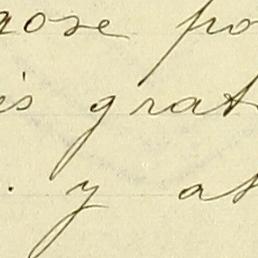 gose po
és grat
. y at